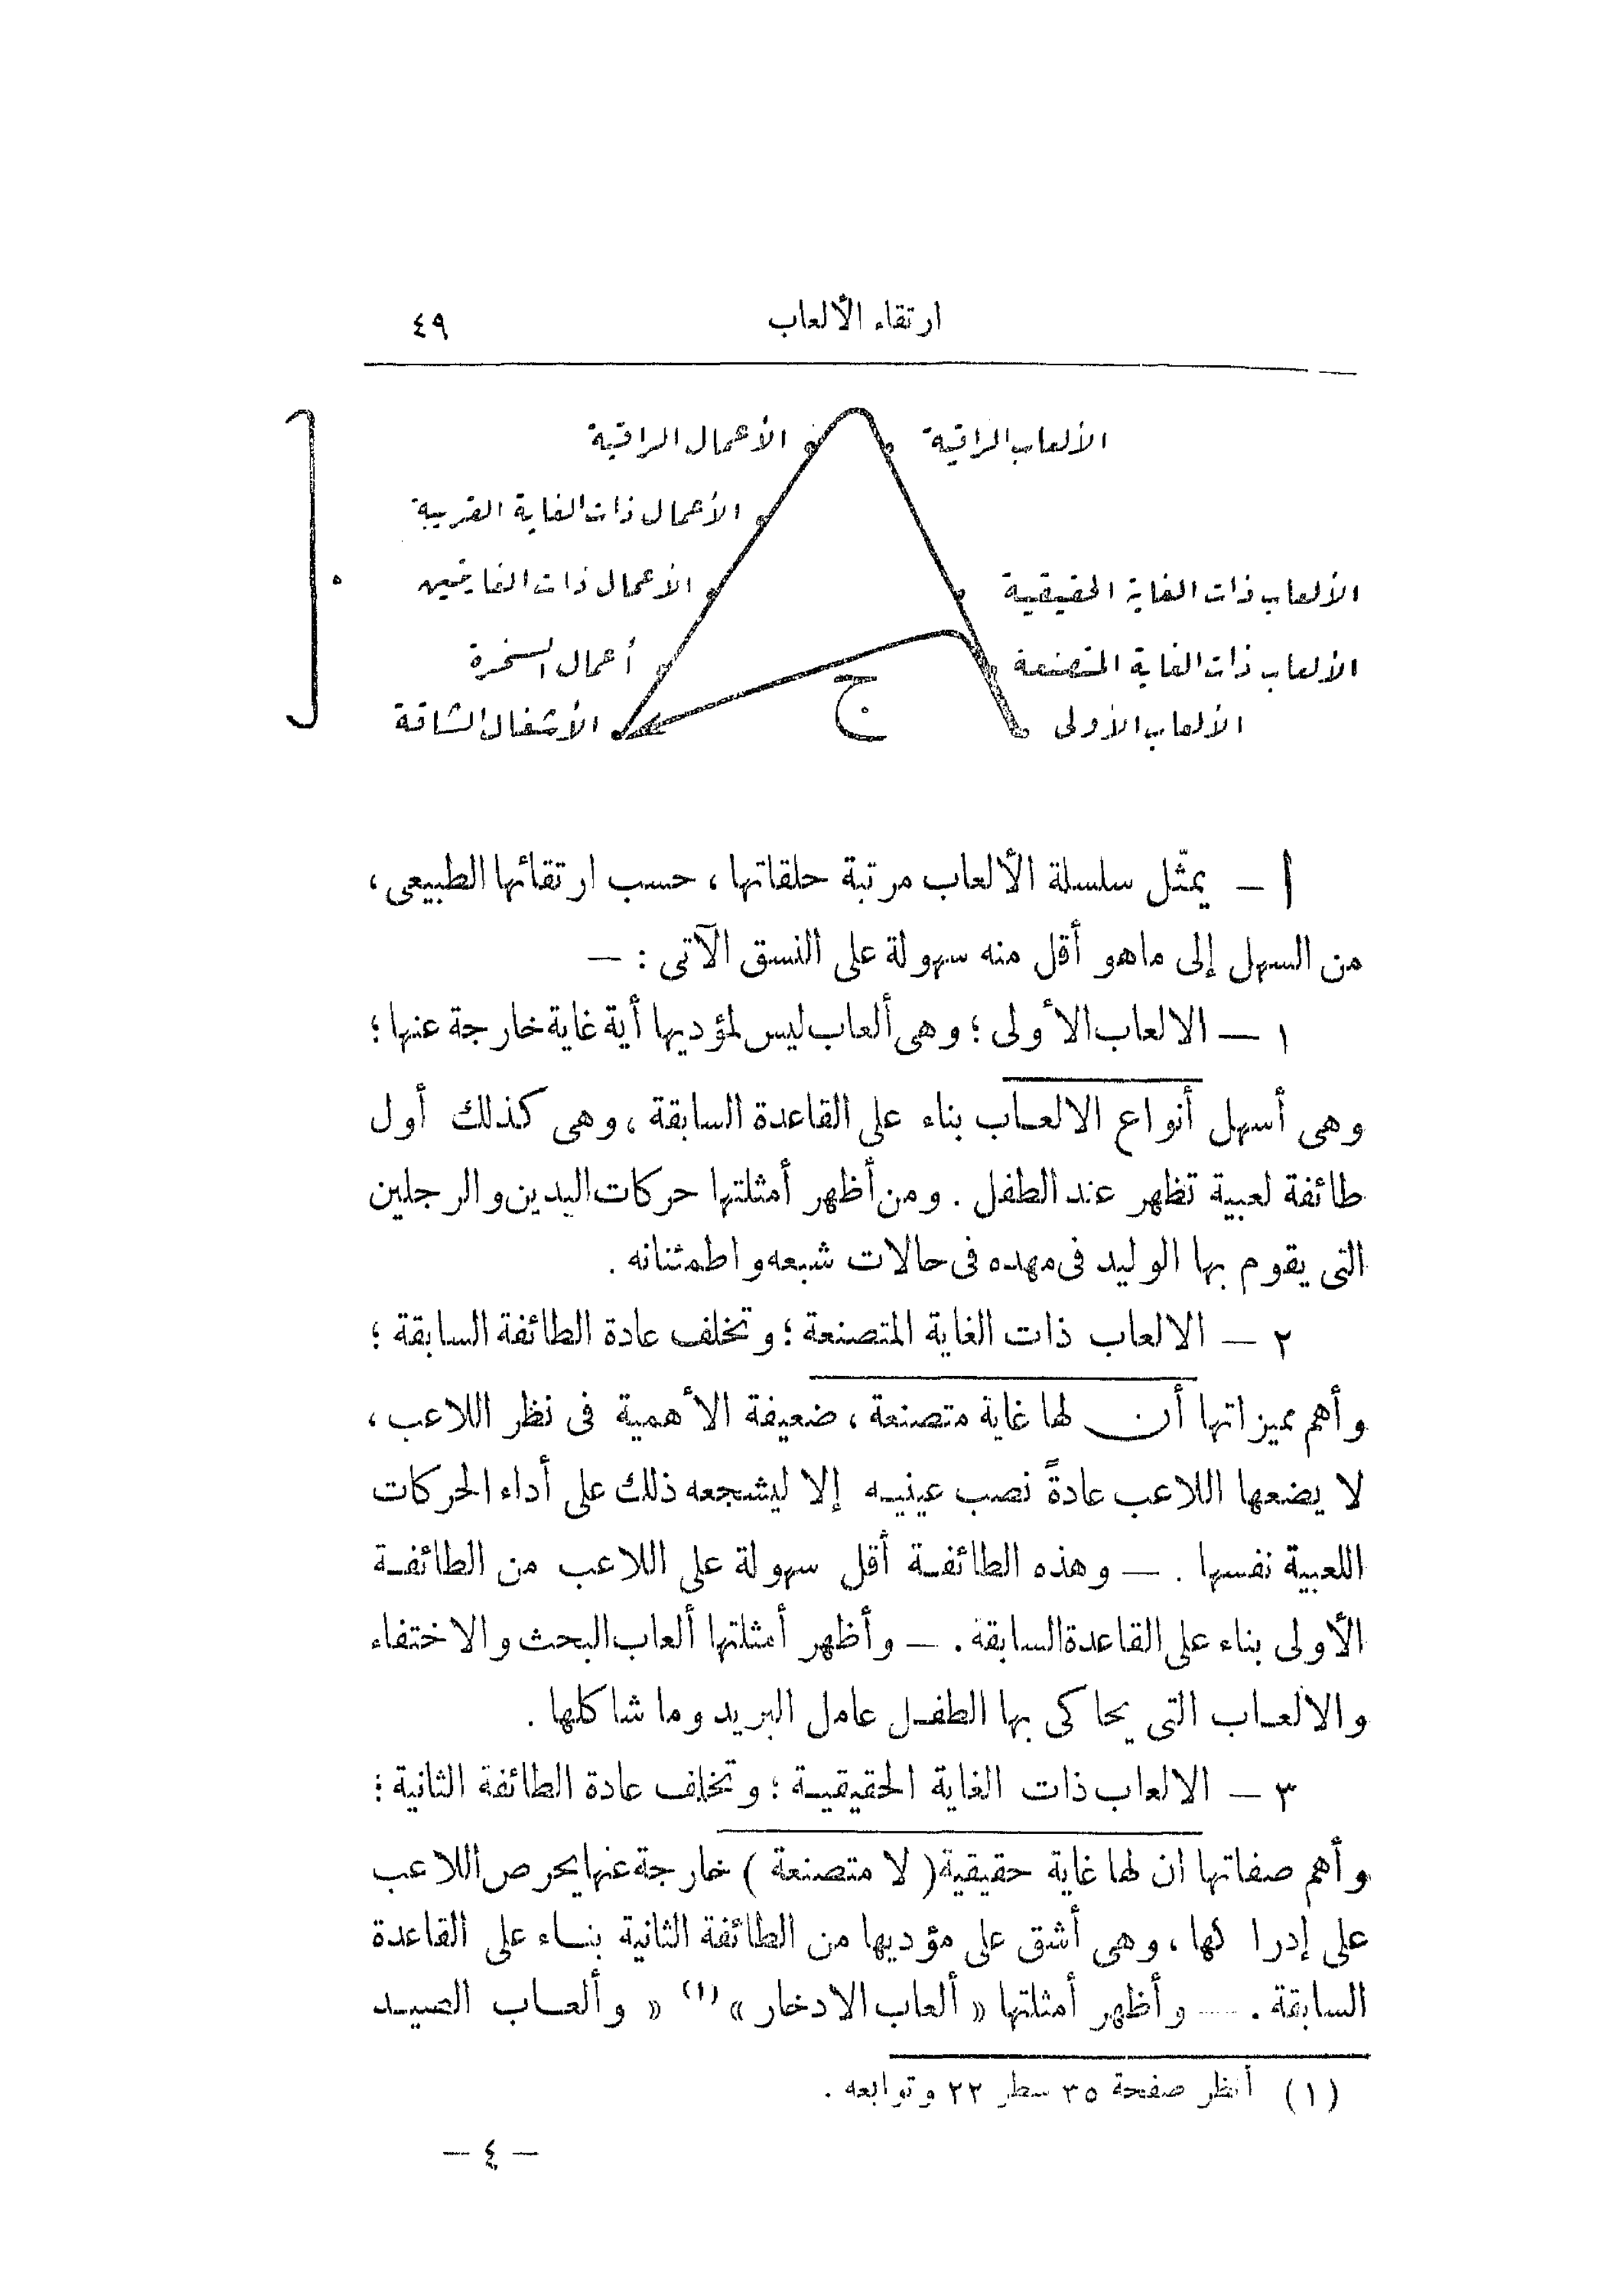 ارتقاء الألعاب ٤٩
الألعاب الراقية الأعمال الراقية
الأعمال ذات الغاية القريبة
الألعاب ذات الغاية الحقيقية الأعمال ذات الغايتين
الألعاب ذات الغاية المتصنعة أعمال السخرة
ج
الألعاب الأولى الأشغال الشاقة
أ — يمثّل سلسلة الألعاب مرتبة حلقاتها ، حسب ارتقائها الطبيعى ،
من السهل إلى ماهو أقل منه سهولة على النسق الآتى : —
١ — الالعاب الأولى ؛ وهى ألعاب ليس لمؤديها أية غاية خارجة عنها ؛
وهى أسهل أنواع الالعاب بناء على القاعدة السابقة ، وهى كذلك أول
طائفة لعبية تظهر عند الطفل . ومن أظهر أمثلتها حركات اليدين والرجلين
التى يقوم بها الوليد فى مهده فى حالات شبعه واطمئنانه .
٢ — الالعاب ذات الغاية المتصنعة ؛ وتخلف عادة الطائفة السابقة ؛
وأهم مميزاتها أن لها غاية متصنعة ، ضعيفة الأهمية فى نظر اللاعب ،
لا يضعها اللاعب عادةً نصب عينيه إلا ليشجعه ذلك على أداء الحركات
اللعبية نفسها . — وهذه الطائفة أقل سهولة على اللاعب من الطائفة
الأولى بناء على القاعدة السابقة . — وأظهر أمثلتها ألعاب البحث والاختفاء
والالعاب التى يحاكى بها الطفل عامل البريد وما شاكلها .
٣ — الالعاب ذات الغاية الحقيقية ؛ وتخلف عادة الطائفة الثانية ؛
وأهم صفاتها ان لها غاية حقيقية ( لا متصنعة ) خارجة عنها يحرص اللاعب
على إدراكها ، وهى أشق على مؤديها من الطائفة الثانية بناء على القاعدة
السابقة . — وأظهر أمثلتها « ألعاب الادخار » (١) « وألعاب الصيد
(١) أنظر صفحة ٣٥ سطر ٢٢ وتوابعه .
— ٤ —